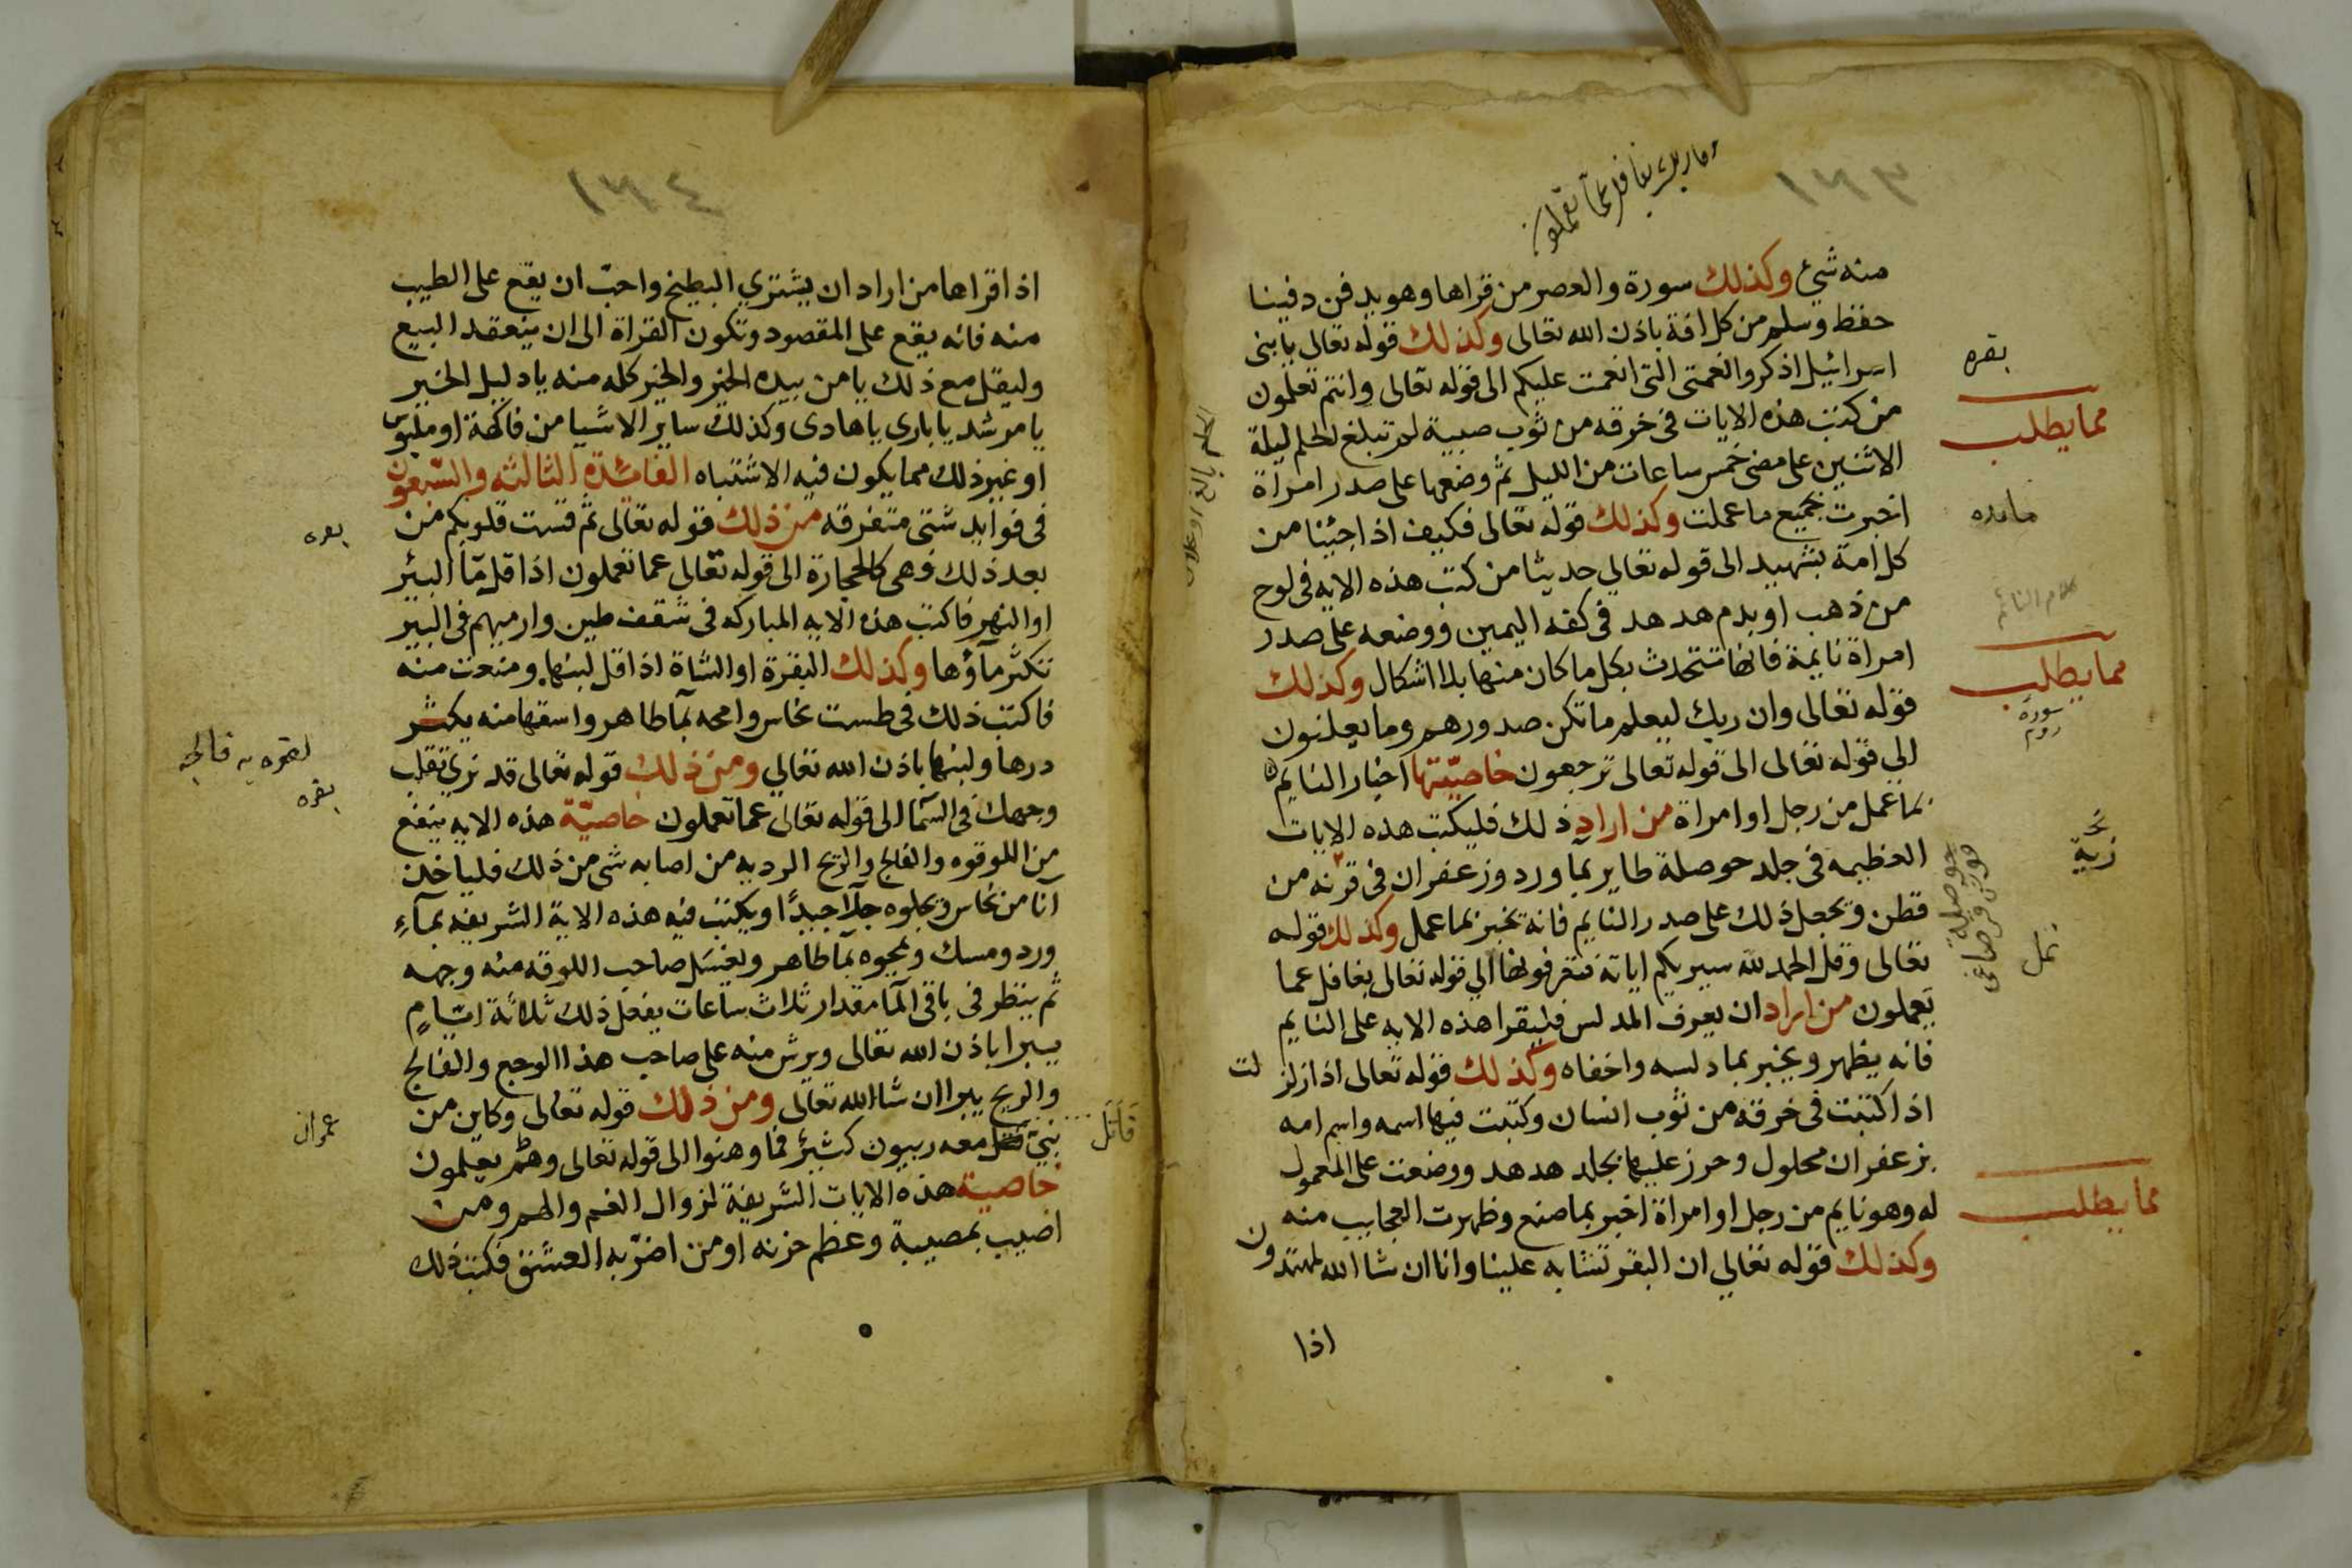 ١٣٣
وما ربك بغافل عما تعملون
منه شئ وكذلك سورة والعصر من قراها وهو يدفن دفينا
حفظ وسلم من كل افة باذن الله تعالى وكذلك قوله تعالى يا بنى
اسرائيل اذكروا نعمتى التى انعمت عليكم الى قوله تعالى وانتم تعلمون
من كتب هذه الايات فى خرقه من ثوب صبية لم تبلغ الحلم ليلة
الاثنين على مضى خمس ساعات من الليل ثم وضعها على صدر امراة
اخبرت بجميع ما عملت وكذلك قوله تعالى فكيف اذا جئنا من
كل امة بشهيد الى قوله تعالى حديثا من كتب هذه الايه فى لوح
من ذهب او بدم هدهد فى كفه اليمين ووضعه على صدر
امراة نايمة فانها تتحدث بكل ما كان منها بلا اشكال وكذلك
قوله تعالى وان ربك ليعلم ما تكن صدورهم وما يعلنون
الى قوله تعالى الى قوله تعالى ترجعون خاصيتها اخبار النايم
بما عمل من رجل او امراة من اراد ذلك فليكتب هذه الايات
العظيمه فى جلد حوصلة طاير بما ورد وزعفران فى قرنه من
قطن وتجعل ذلك على صدر النايم فانه يخبر بما عمل وكذلك قوله
تعالى وقل الحمد لله سيريكم اياته فتعرفونها الى قوله تعالى بغافل عما
يعملون من اراد ان يعرف المدلس فليقرا هذه الايه على النايم
فانه يظهر ويخبر بما دلسه واخفاه وكذلك قوله تعالى اذا زلز لت
اذا كتبت فى خرقه من ثوب انسان وكتبت فيها اسمه واسم امه
بزعفران محلول وحرز عليها بجلد هدهد ووضعت على المعمول
له وهو نايم من رجل او امراة اخبر بما صنع وظهرت العجايب منه
وكذلك قوله تعالى ان البقر تشابه علينا وانا ان شا الله لمهتدون
اذا
بقره
مما يطلب
مايده
كلام النائم
مما يطلب
سورة
روم
نمل
حوصلة
مما يطلب
١٣٤
اذا قراها من اراد ان يشتري البطيخ واحب ان يقع على الطيب
منه فانه يقع على المقصود وتكون القراة الى ان ينعقد البيع
وليقل مع ذلك يا من بيده الخير والخير كله منه يا دليل الخير
يا مرشد يا باري يا هادى وكذلك ساير الاشيا من فاكهة او ملبوس
او غير ذلك مما يكون فيه الاشتباه الفائدة الثالثة والسبعون
فى فوايد شتى متفرقه من ذلك قوله تعالى ثم قست قلوبكم من
بعد ذلك فهى كالحجارة الى قوله تعالى عما تعملون اذا قل ما البير
او النهر فاكتب هذه الايه المباركه فى شقف طين وارميهم فى البير
تكثر مآؤها وكذلك البقرة او الشاة اذا قل لبنها ومنعت منه
فاكتب ذلك فى طست نحاس وامحه بمآ طاهر واسقها منه يكثر
درها ولبنها باذن الله تعالى ومن ذلك قوله تعالى قد نرى تقلب
وجهك فى السما الى قوله تعالى عما تعملون خاصية هذه الايه ينفع
من اللوقوه والفالج والريح الرديه من اصابه شى من ذلك فلياخذ
آنا من نحاس ويجلوه جلاً جيداً ويكتب فيه هذه الاية الشريفه بمآء
ورد ومسك ويمحوه بمآ طاهر ويغسل صاحب اللوقه منه وجهه
ثم ينظر فى باقى المآ مقدار ثلاث ساعات يفعل ذلك ثلاثة ايام
يبرا باذن الله تعالى ويرش منه على صاحب هذا الوجع والفالج
والريح يبرا ان شا الله تعالى ومن ذلك قوله تعالى وكاين من
نبى قتل معه ربيون كثير فما وهنوا الى قوله تعالى وهم يعلمون
خاصية هذه الايات الشريفة لزوال الغم والهم ومن
اصيب بمصيبة وعظم حزنه او من اضر به العشق فكتب ذلك
بقره
بقره
قاتل
عمران